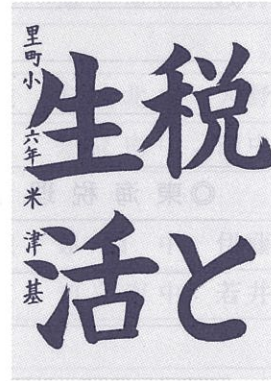 税と
生活
里町小 六年 米津 基